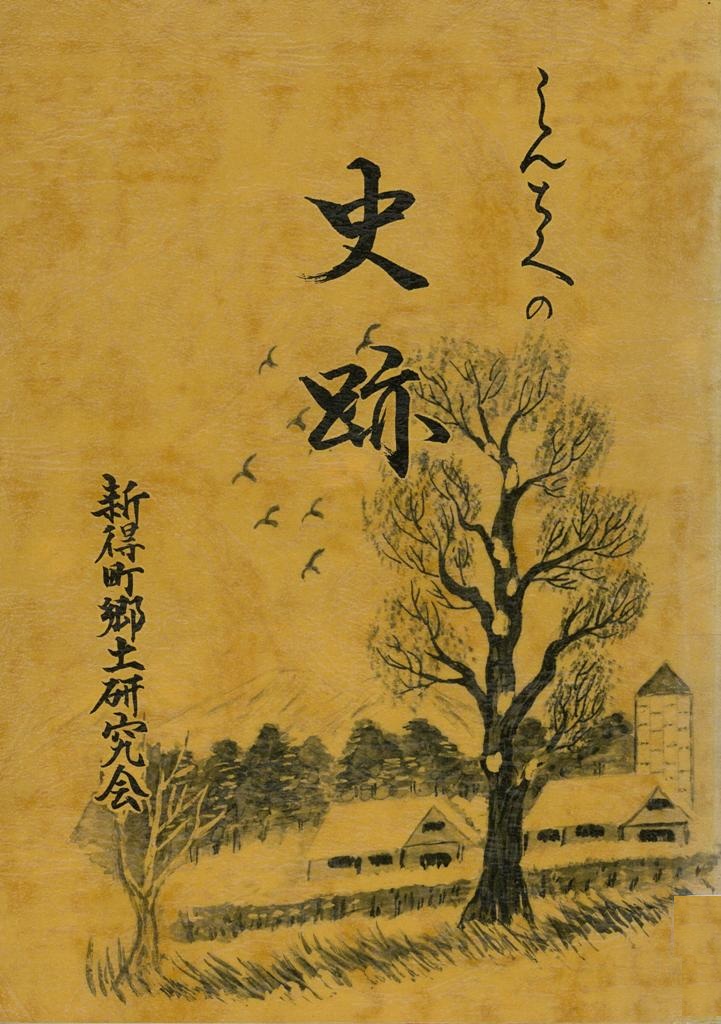 しんとくの
史跡
新得町郷土研究会